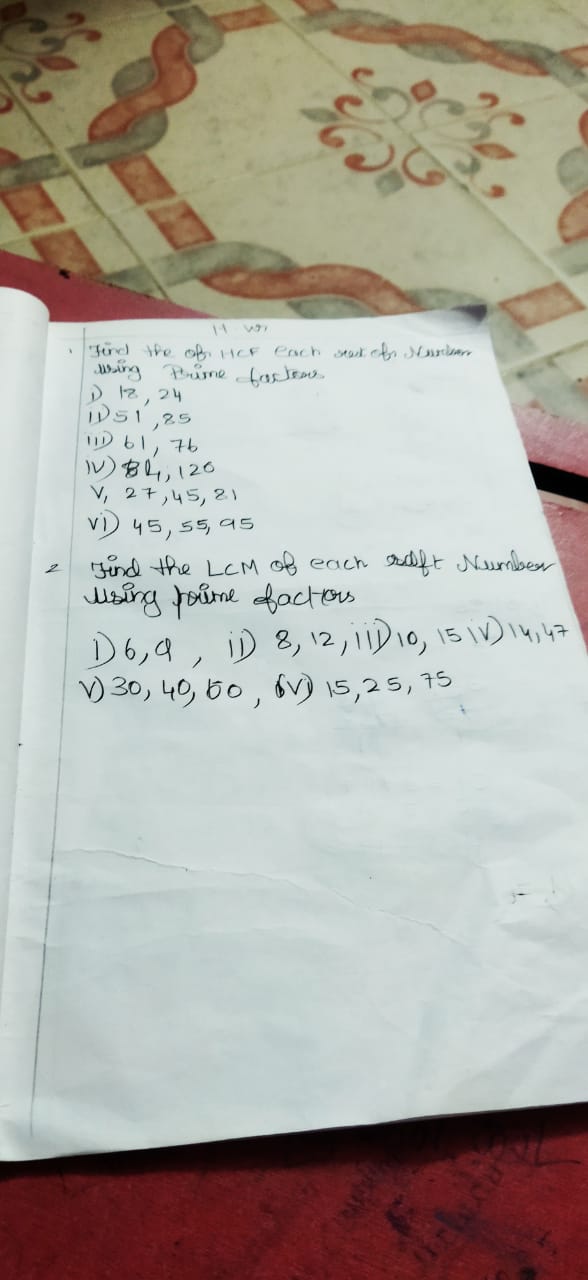 H W
1 Find the of HCF each set of Number
using Prime factors
i) 18, 24
ii) 51, 85
iii) 61, 76
iv) 84, 120
v, 27, 45, 81
vi) 45, 55, 95
2 Find the LCM of each Number
using prime factors
i) 6, 9, ii) 8, 12, iii) 10, 15 iv) 14, 47
v) 30, 40, 60, vi) 15, 25, 75